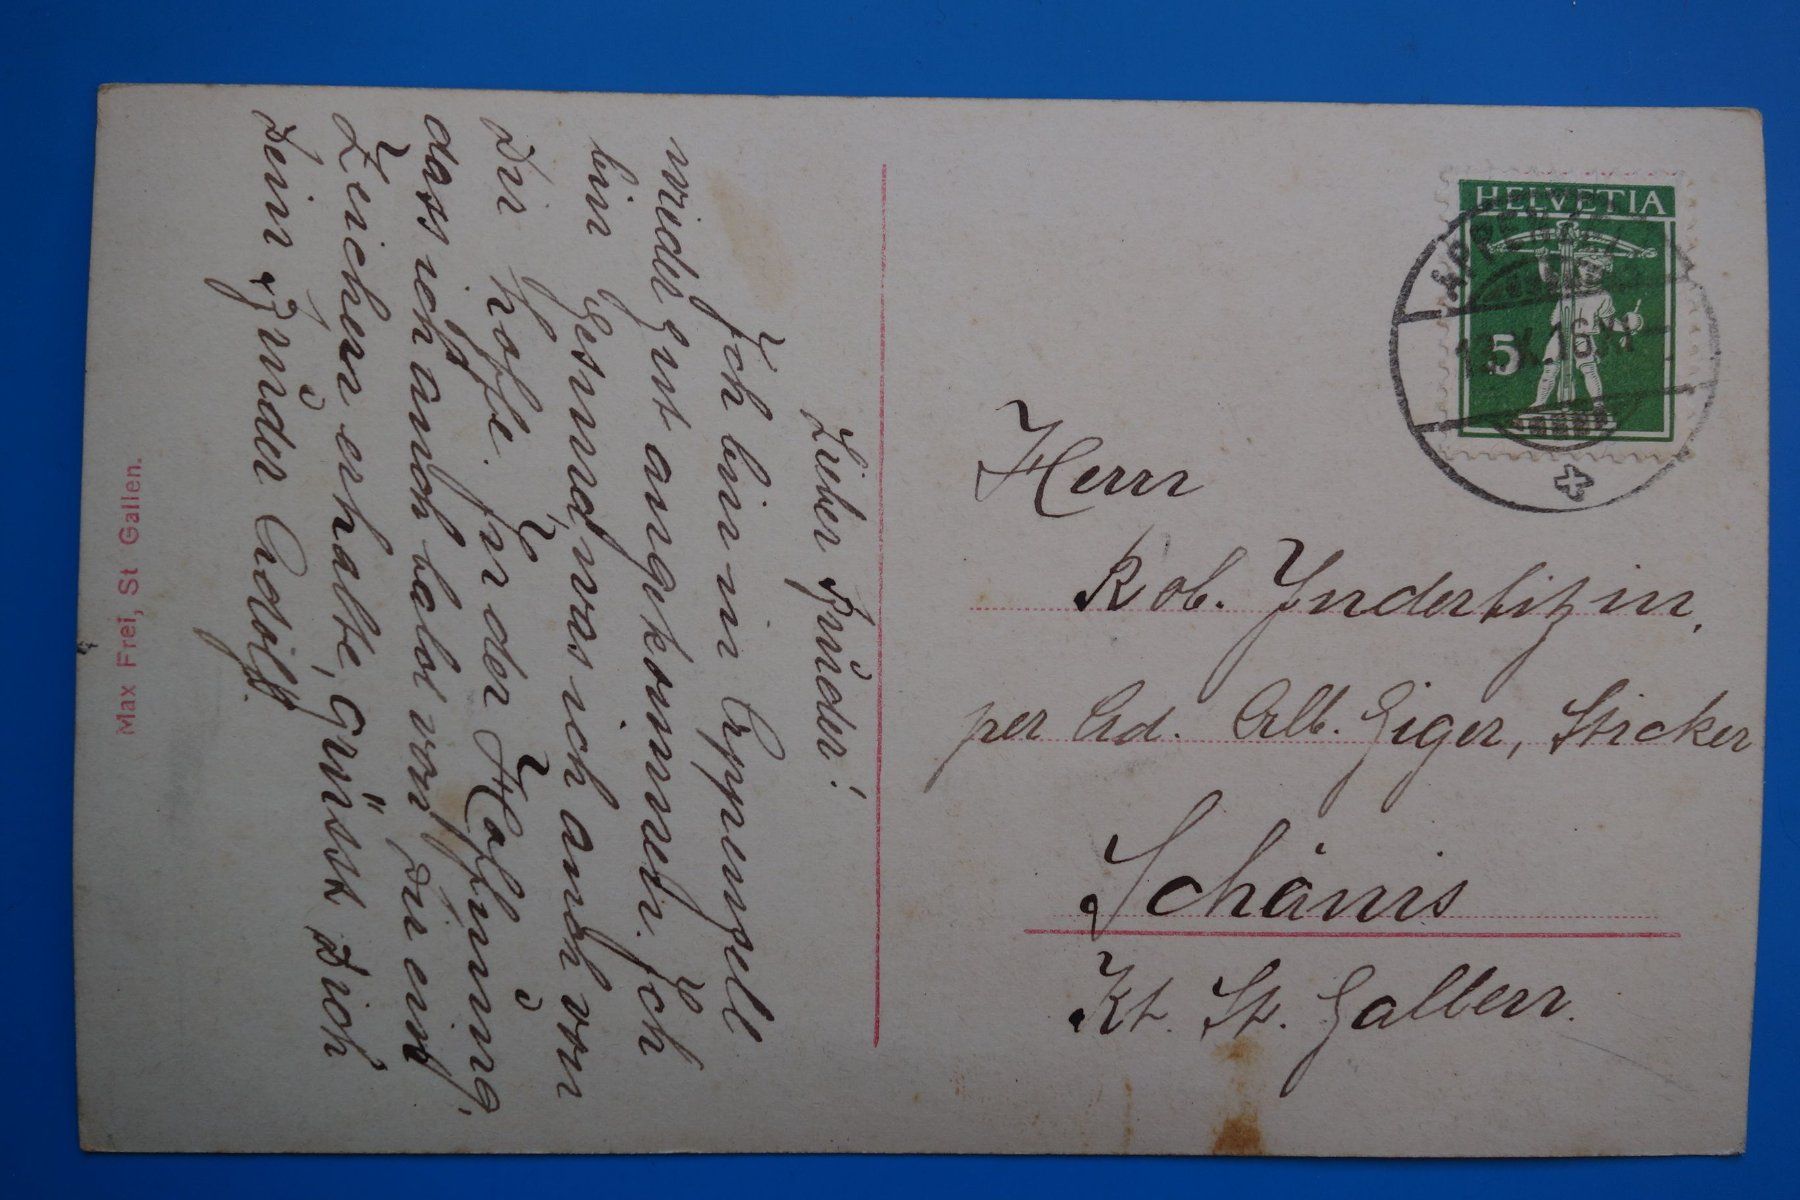 Lieber Bruder!
Ich bin in Appenzell
wieder gut angekommen. Ich
bin gesund, was ich auch von
Dir hoffe. In der Hoffnung,
dass ich auch bald von Dir ein
Zeichen erhalte, grüsst Dich
Dein Bruder Adolf.
Max Frei, St Gallen.
HELVETIA
5
APPENZELL
Herrn
Rob. Inderbitzin,
per Ad. Alb. Giger, Sticker
Schänis
Kt. St. Gallen.